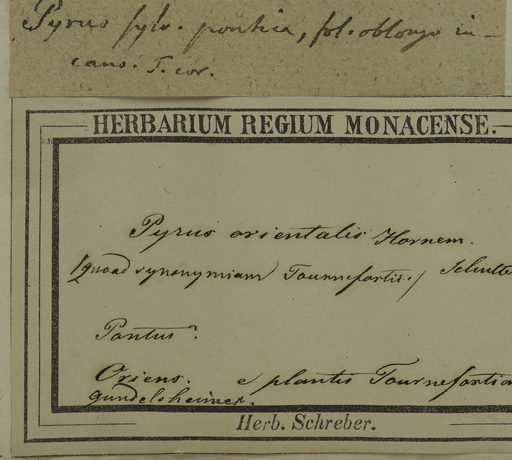 Pyrus sylv. pontica, fol. oblongo in-
cano. T. cor.
HERBARIUM REGIUM MONACENSE.
Pyrus orientalis Hornem.
(quoad synonymiam Tournefortii.) Schulte
Pontus?
Oriens. e plantis Tournefortia
gundelsheimer.
Herb. Schreber.